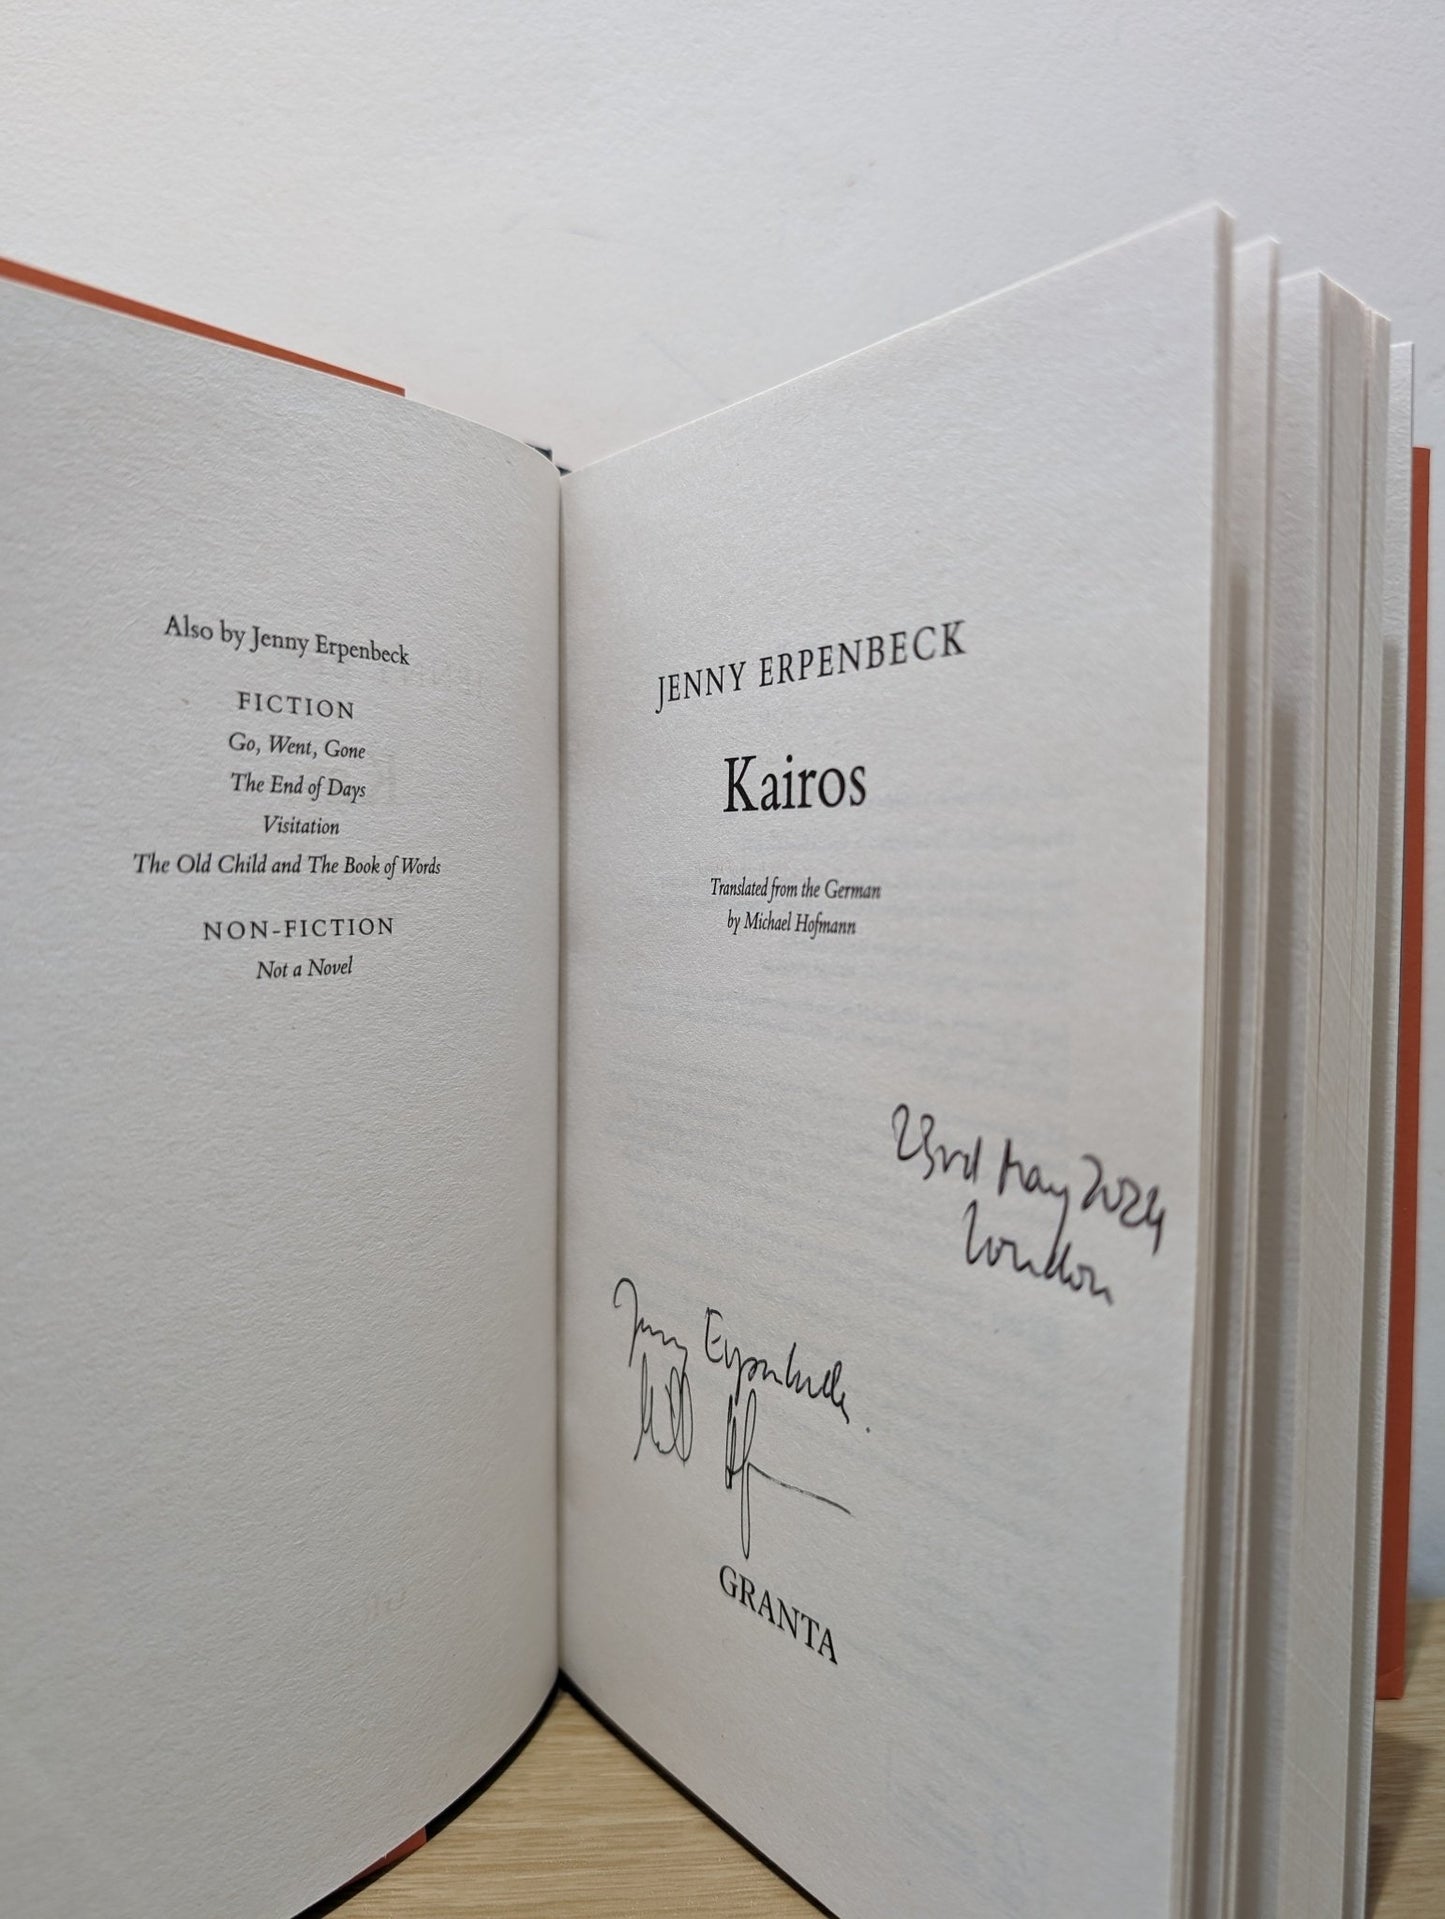 Also by Jenny Erpenbeck
FICTION
Go, Went, Gone
The End of Days
Visitation
The Old Child and The Book of Words
NON-FICTION
Not a Novel
JENNY ERPENBECK
Kairos
Translated from the German
by Michael Hofmann
23rd May 2024
London
Jenny Erpenbeck.
GRANTA